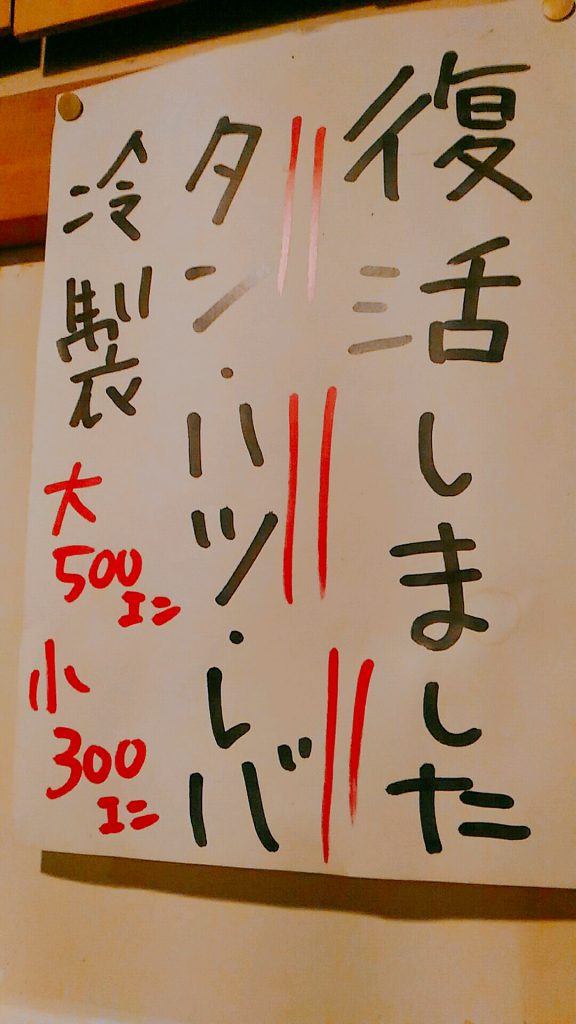 復活しました
タン・ハツ・レバ
冷製
大
500
エン
小
300
エン